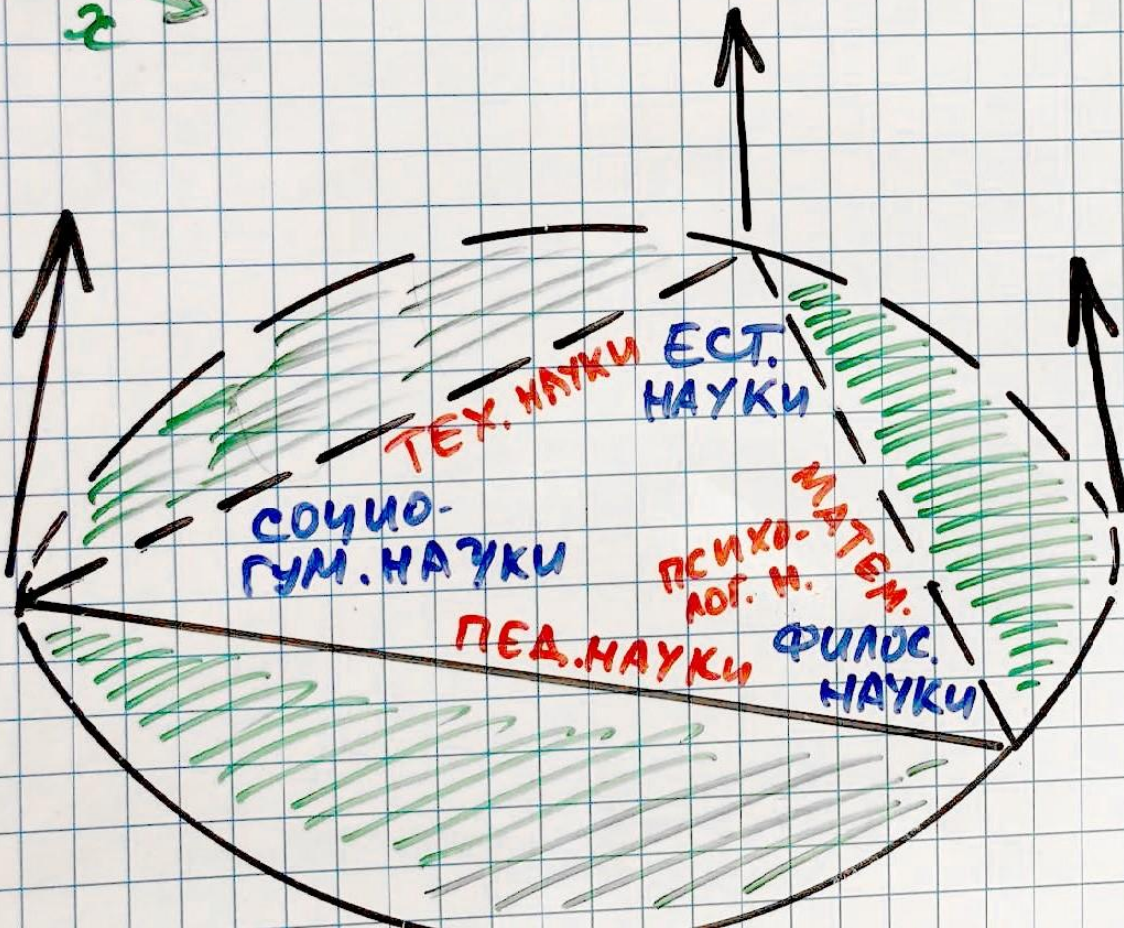 x
ЕСТ.
НАУКИ
ТЕХ. НАУКИ
СОЦИО-
ГУМ. НАУКИ
МАТЕМ.
ПСИХО-
ЛОГ. Н.
ПЕД. НАУКИ
ФИЛОС.
НАУКИ